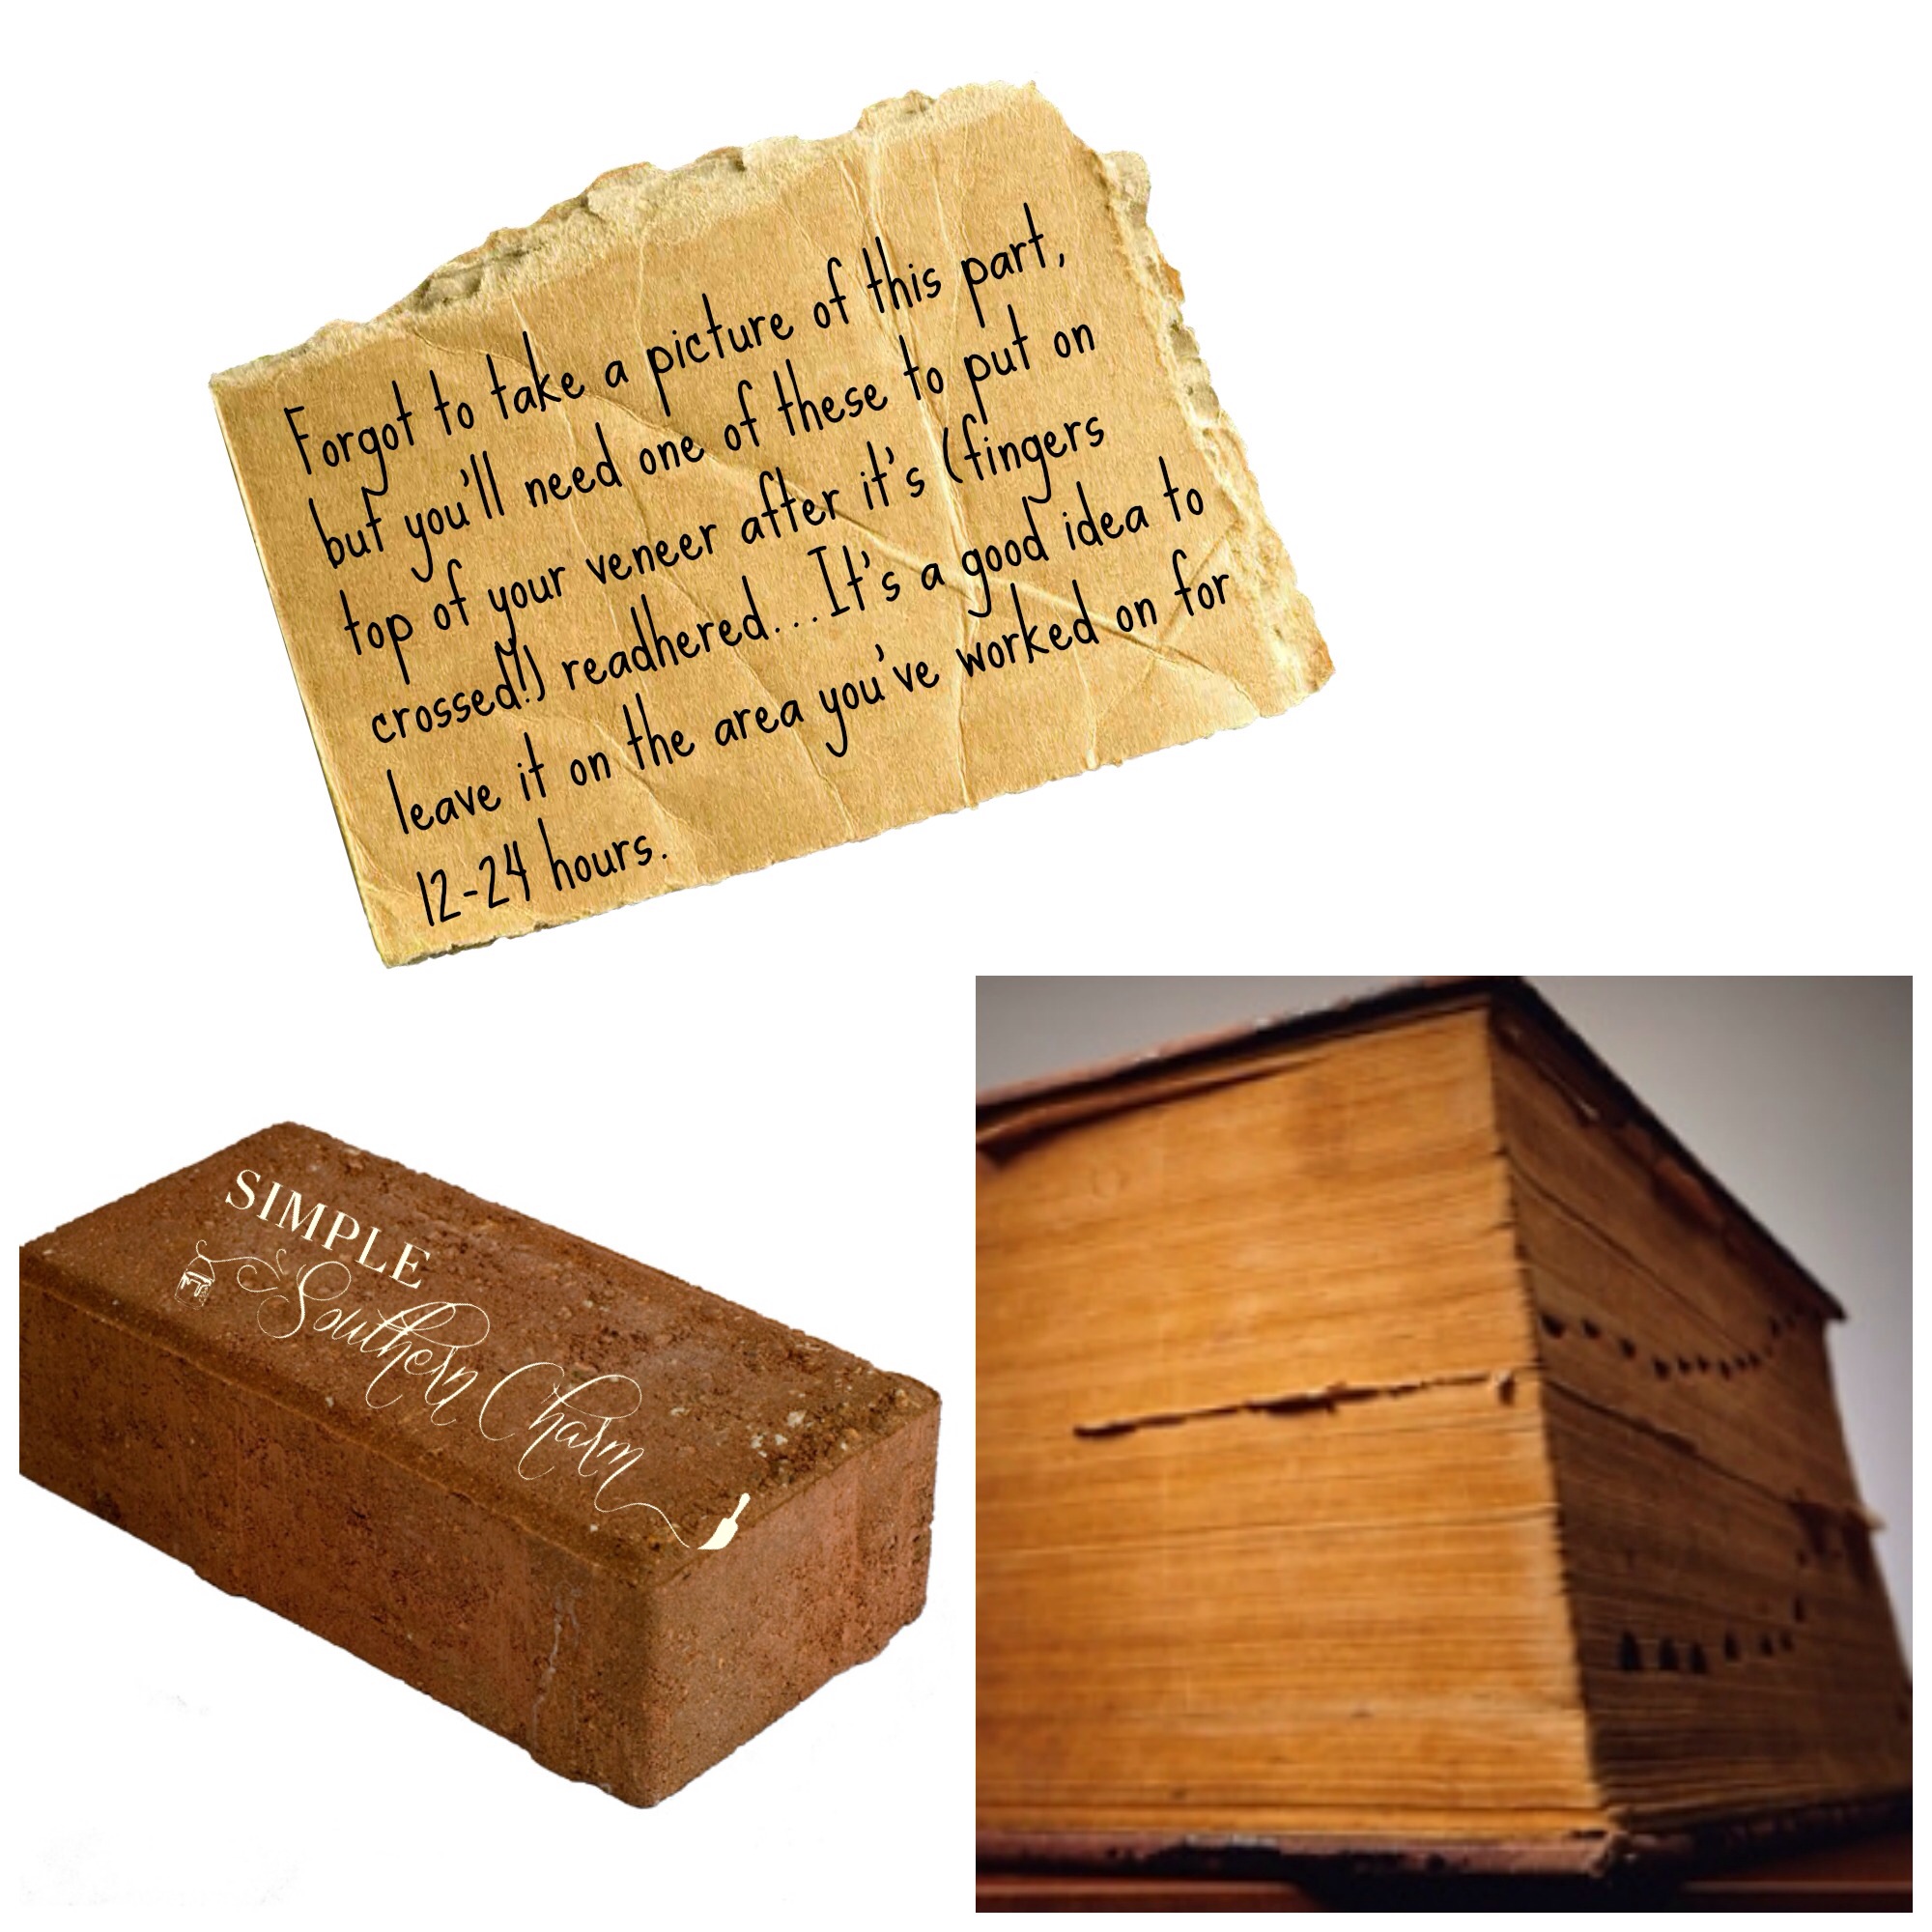 Forgot to take a picture of this part,
but you'll need one of these to put on
top of your veneer after it's (fingers
crossed!) readhered...It's a good idea to
leave it on the area you've worked on for
12-24 hours.
SIMPLE
Southern Charm